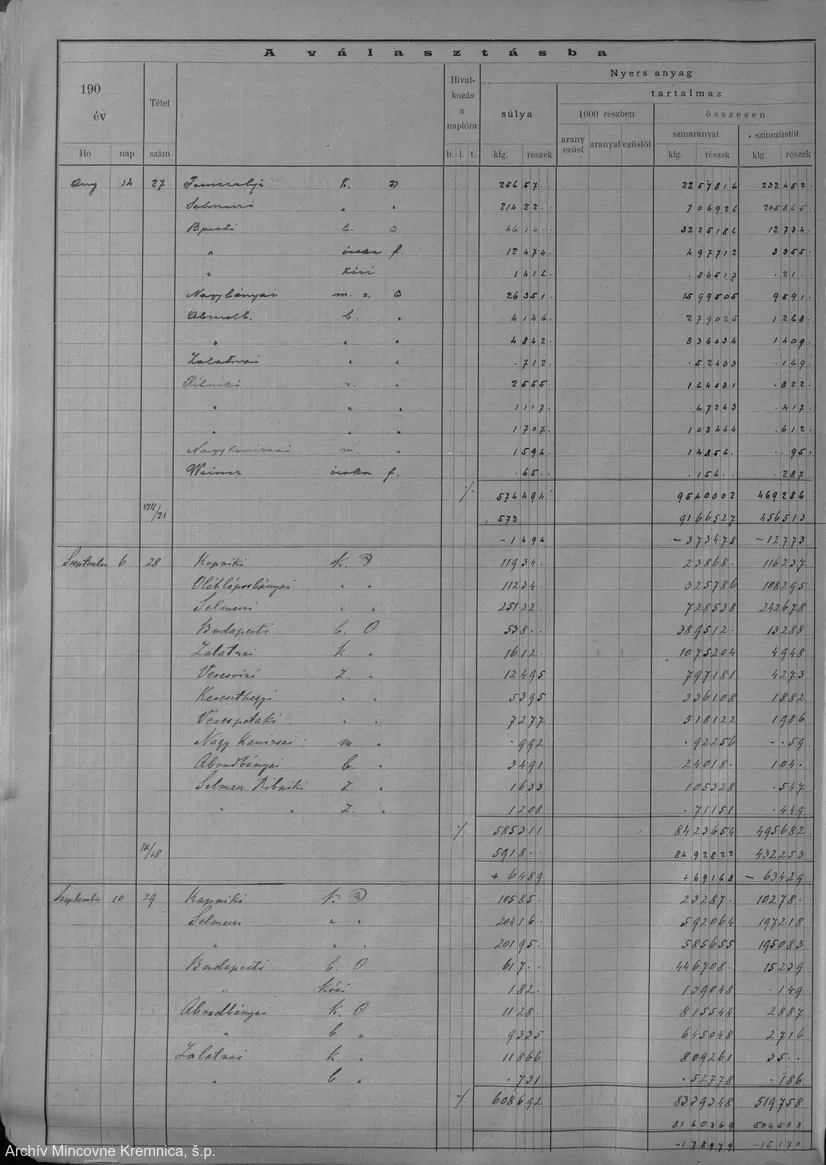 A választásba
190 év
Tétel szám
Hivatkozás a naplóra
Nyers anyag
súlya
tartalmaz
1000 részben
összesen
arany ezüst
aranyat
ezüstöt
színaranyat
színezüstöt
Hó nap b. l. t. klg. részek klg. részek klg. részek
Aug 14 27 K. 25657 2257816 232452
Selmeczi „ „ 21422 706926 205865
Bpesti b. O 4614 3225186 12734
„ ócska f. 12474 497712 3355
„ Kézi 1416 86517 21
Nagybányai m. z. O 26351 1599505 9591
b. „ 4146 279025 1268
„ „ „ 4842 336034 1409
Zalatnai „ „ 712 52463 169
z. „ 2555 164031 822
„ „ „ 1117 67243 417
„ „ „ 1707 103444 612
m. „ 1594 14856 95
Weiner ócska f. 65 156 287
574494 9540002 469286
VIII/21 573 9166527 456513
-1494 -373475 -12773
September 6 28 Kapniki K. 11934 23868 116237
Oláhláposbányai „ „ 11234 325786 108295
Selmeczi „ „ 25122 728538 242678
Budapesti b. O 538 389512 13288
Zalatnai K. „ 1612 1075204 4948
Veresvizi Z. „ 12495 797181 4273
Kereszthegyi „ „ 5395 336108 1882
Verespataki „ „ 7277 518122 1986
Nagy Kanizsai m. „ 992 92256 59
Abrudbányai b. „ 3491 24018 104
Selmecz Z. „ 1633 105328 547
„ „ Z. „ 1208 71151 449
585311 8423654 495682
IX/18 5918 8492822 432253
+6489 +69168 -63429
September 10 29 Kapniki K. 10585 23287 10278
Selmeczi „ „ 20416 592064 197218
„ „ „ 20195 585655 195083
Budapesti b. O 617 446708 15239
„ Kézi 182 139048 149
Abrudbányai K. O 1128 815544 2887
„ b. „ 9335 645048 2716
Zalatnai K. „ 11866 809261 35
„ b. „ 731 52778 186
608692 8339348 519758
8160369 504518
-178979 -15170
Archív Mincovne Kremnica, š.p.